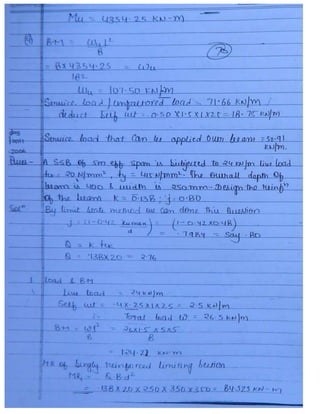 Mu = 4354.25 KN-m
B.M = wu l²
8
= 8x4354.25 = wu
18²
Wu = 107.50 KN/m
Service load / unfactored load = 71.66 KN/m
deduct self wt = 0.50 x1.5x1x25 = 18.75 KN/m
Service load that can be applied over beam =
KN/m.
2006
Ques- A SSB of 5m eff span is subjected to 24 KN/m live load
fck = 20 N/mm², fy = 415 N/mm². The overall depth of
beam is & width is 250mm. Design the reinfⁿ
of the beam K = 0.138 ; j = 0.80
Solⁿ By limit state method we can done this question
j = (1-0.42 xumax) = (1-0.42x0.48)
d
= .7984 = say .80
Q = k fck
Q = .138x20 = 2.76
1 load & BM
live load = 24 KN/m
Self wt = .4 x.25x1x25 = 2.5 KN/m
Total load W = 26.5 KN/m
BM = wl² = 26x1.5x5x5
8 8
= 124.22 KN-m
MR of Singly reinforced limiting section
= 138x20x250x350x350 = 84.525 KN-m